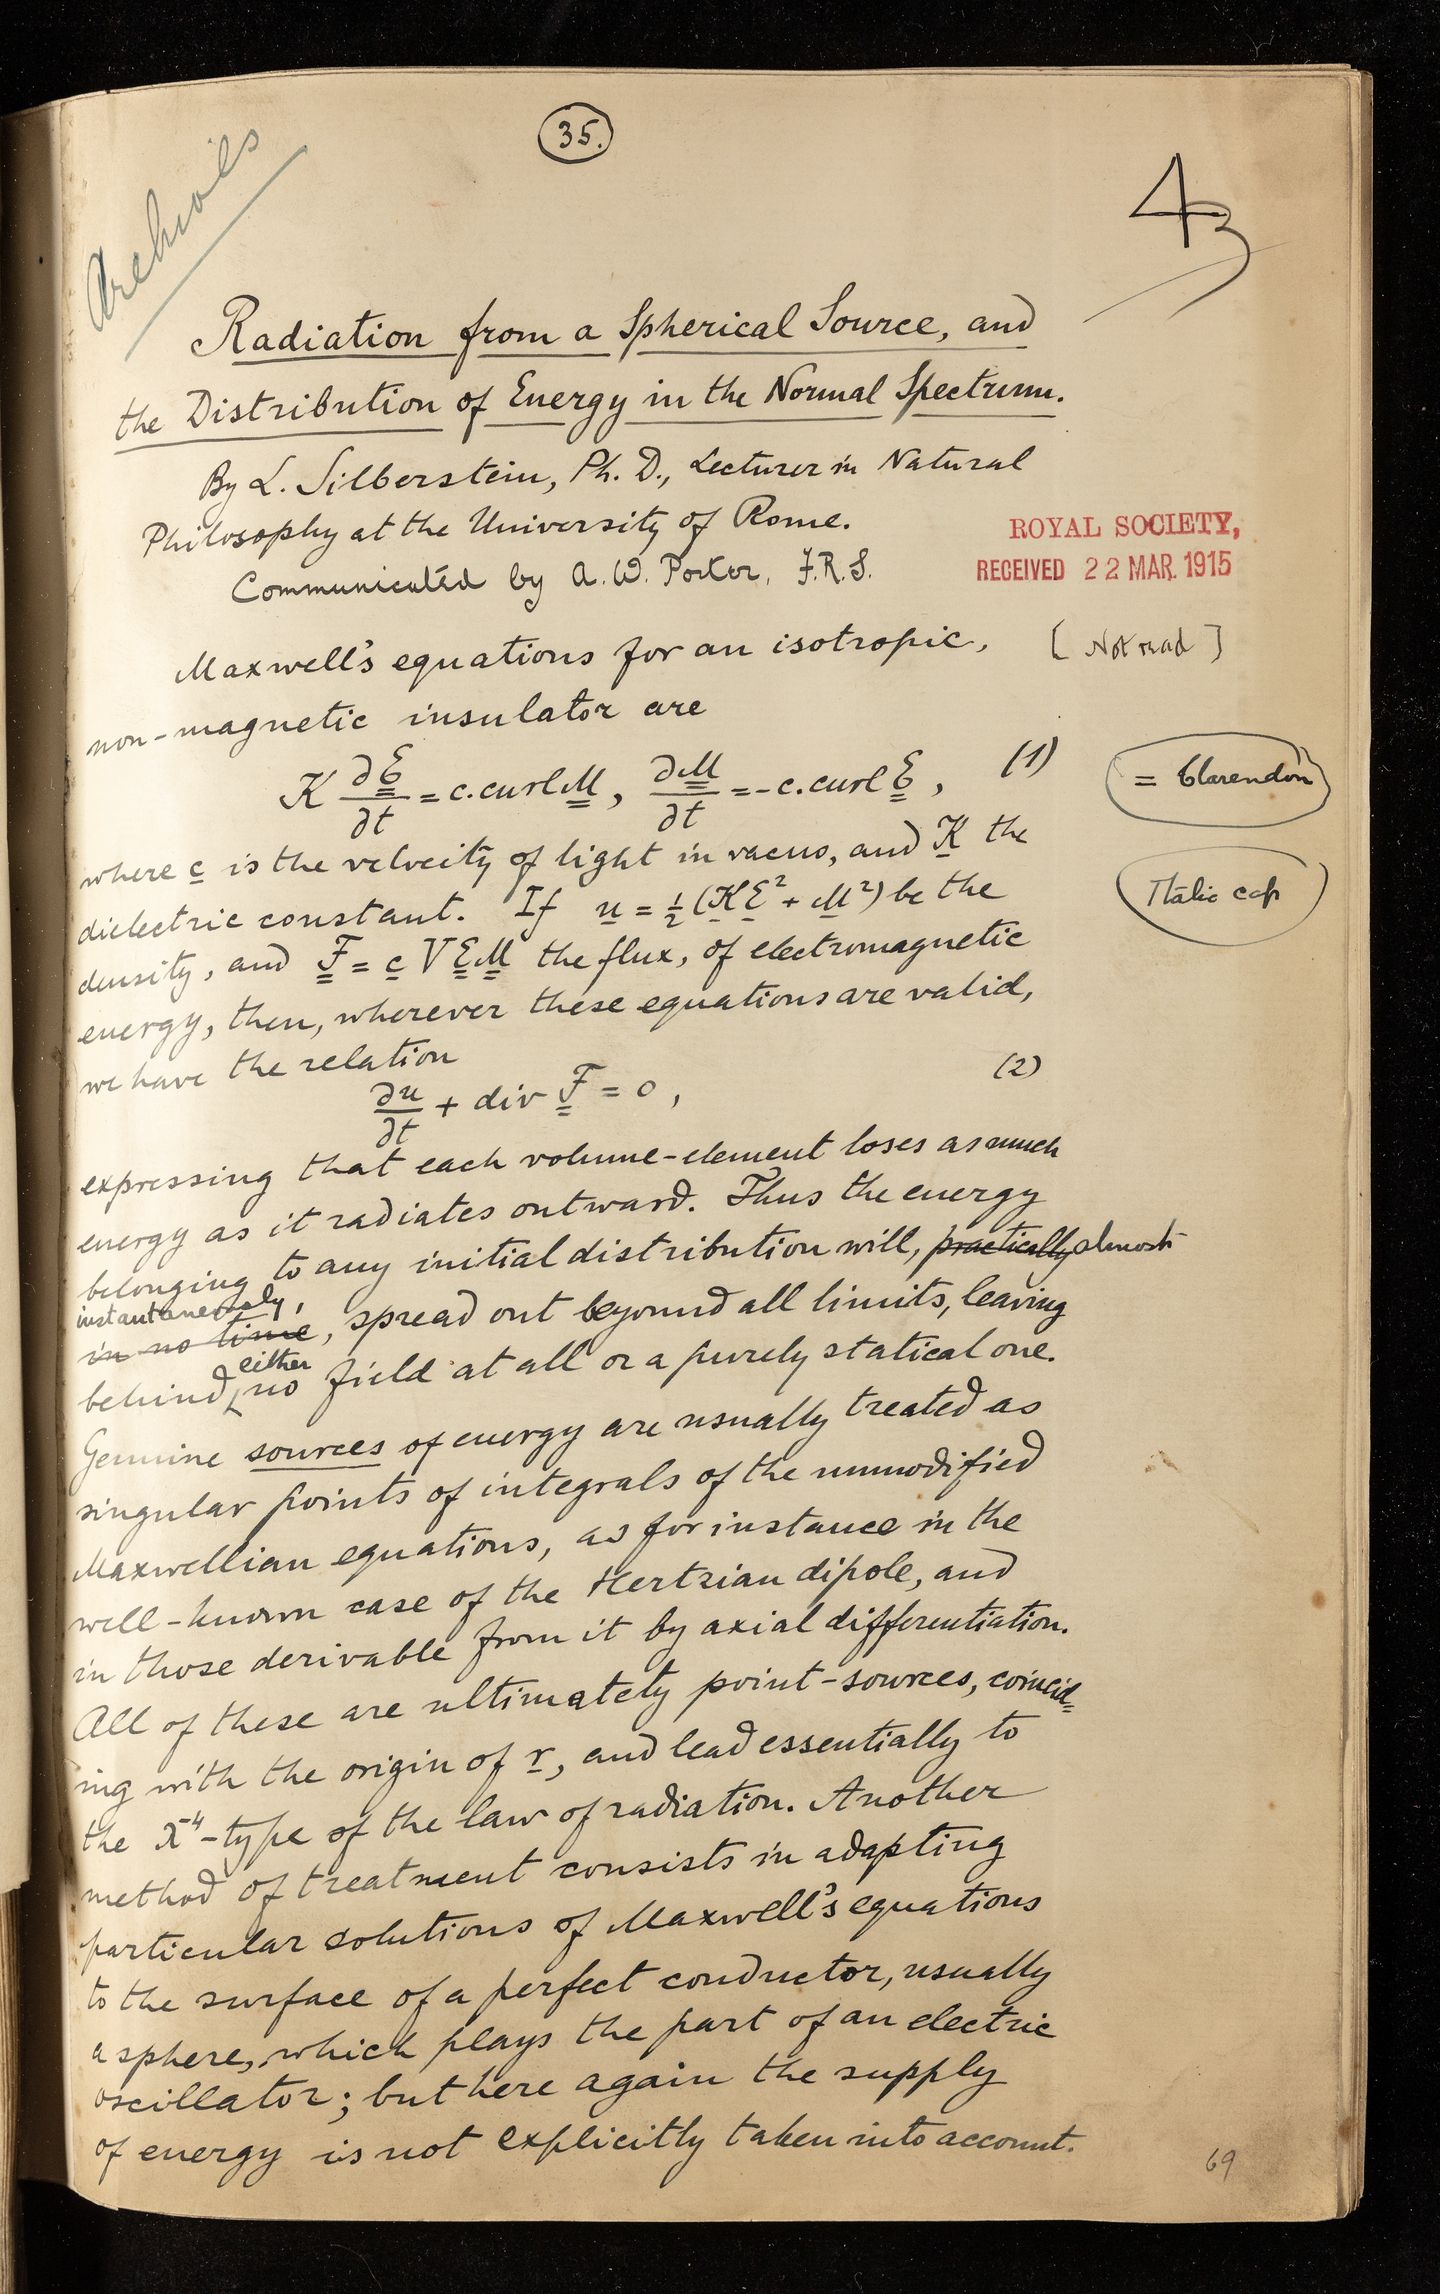 35.
Archives
43
Radiation from a Spherical Source, and
the Distribution of Energy in the Normal Spectrum.
By L. Silberstein, Ph. D., Lecturer in Natural
Philosophy at the University of Rome.
Communicated by A. W. Porter, F.R.S.
ROYAL SOCIETY,
RECEIVED 22 MAR. 1915
[Not read]
Maxwell's equations for an isotropic,
non-magnetic insulator are
K ∂E/∂t = c. curl M, ∂M/∂t = -c. curl E, (1)
= Clarendon
where c is the velocity of light in vacuo, and K the
Italic cap
dielectric constant. If u = ½(KE² + M²) be the
density, and F = c VEM the flux, of electromagnetic
energy, then, wherever these equations are valid,
we have the relation
∂u/∂t + div F = 0, (2)
expressing that each volume-element loses as much
energy as it radiates outward. Thus the energy
belonging to any initial distribution will, practically almost
instantaneously,
in no time, spread out beyound all limits, leaving
behind either no field at all or a purely statical one.
Genuine sources of energy are usually treated as
singular points of integrals of the unmodified
Maxwellian equations, as for instance in the
well-known case of the Hertzian dipole, and
in those derivable from it by axial differentiation.
All of these are ultimately point-sources, coincid=
ing with the origin of r, and lead essentially to
the λ⁻⁴-type of the law of radiation. Another
method of treatment consists in adapting
particular solutions of Maxwell's equations
to the surface of a perfect conductor, usually
a sphere, which plays the part of an electric
oscillator; but here again the supply
of energy is not explicitly taken into account.
69